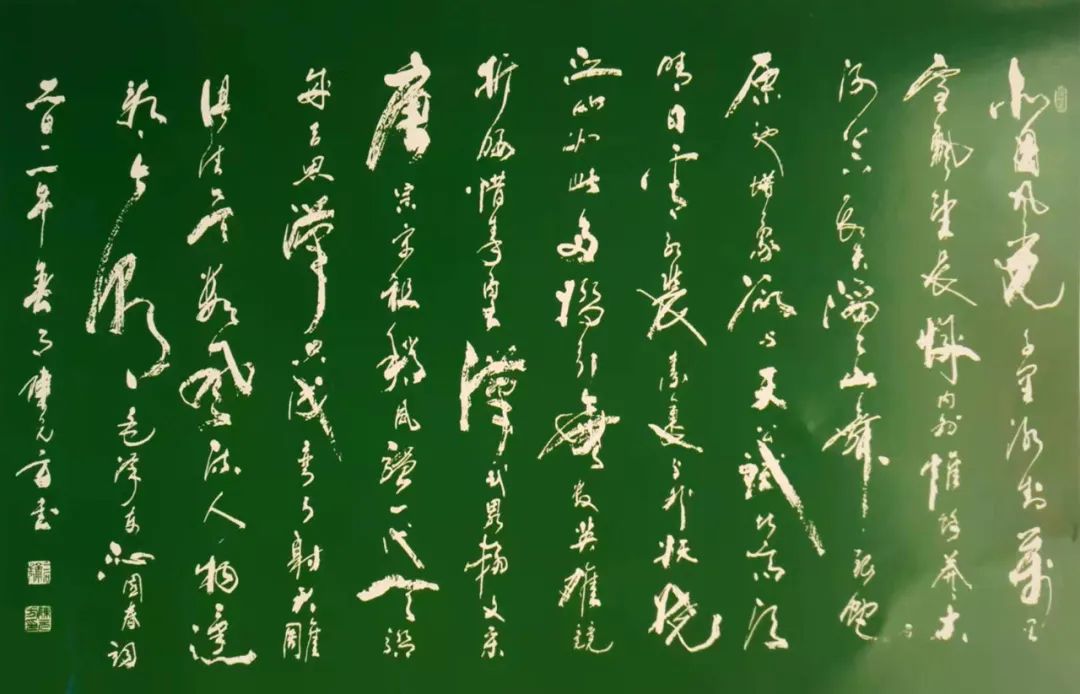 北國风光千里冰封萬里
雪飘望长城内外惟馀莽莽大
河上下顿失滔滔山舞银蛇
原驰蜡象欲与天公试比高须
晴日看红装素裹分外妖娆
江山如此多娇引無数英雄竞
折腰惜秦皇漢武略输文采
唐宗宋祖稍逊风骚一代天骄
成吉思汗只识弯弓射大雕
俱往矣数风流人物还
看今朝毛泽东沁园春词
年春月元方书